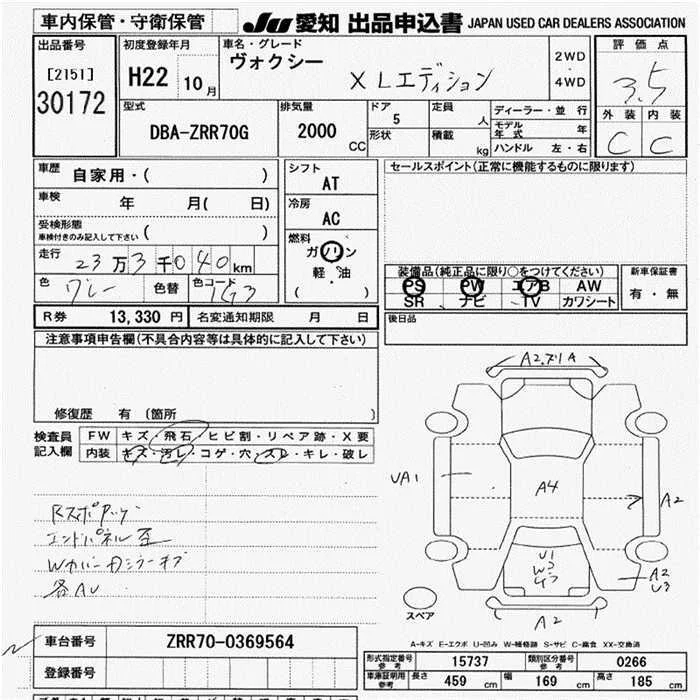 車内保管・守衛保管
JU 愛知 出品申込書 JAPAN USED CAR DEALERS ASSOCIATION
出品番号
[2151]
30172
初度登録年月
H22 10月
車名・グレード
ヴォクシー
XLエディション
2WD
・
4WD
評価点
3.5
外装 内装
C C
型式
DBA-ZRR70G
排気量
2000
CC
ドア
5
形状
定員
人
積載
kg
ディーラー・並行
モデル年式 年
ハンドル 左・右
車歴
自家用・( )
車検
年 月( 日)
受検形態
車検付きのみ記入して下さい ( )
走行
23万3千040km
色
グレー
色替
色コード
1G3
シフト
AT
冷房
AC
燃料
ガソリン
軽・油
( )
セールスポイント(正常に機能するものに限ります)
装備品(純正品に限り○をつけてください)
PS PW エアB AW
SR ナビ TV カワシート
新車保証書
有・無
後日品
R券 13,330 円 名変通知期限 月 日
注意事項申告欄(不具合内容等は具体的に記入して下さい)
修復歴 有 〔箇所 〕
検査員記入欄
FW キズ・飛石・ヒビ割・リペア跡・X要
内装 キズ・汚レ・コゲ・穴・スレ・キレ・破レ
エンドパネル歪
各AU
A2.ズレA
UA1
A4
A2
U1
W3
A2
U3
A2
スペア
A-キズ E-エクボ U-凹み W-補修跡 S-サビ C-腐食 XX-交換済
車台番号 ZRR70-0369564
登録番号
形式指定番号 参考 15737 類別区分番号 参考 0266
車庫証明用 参考 長さ 459 cm 幅 169 cm 高さ 185 cm